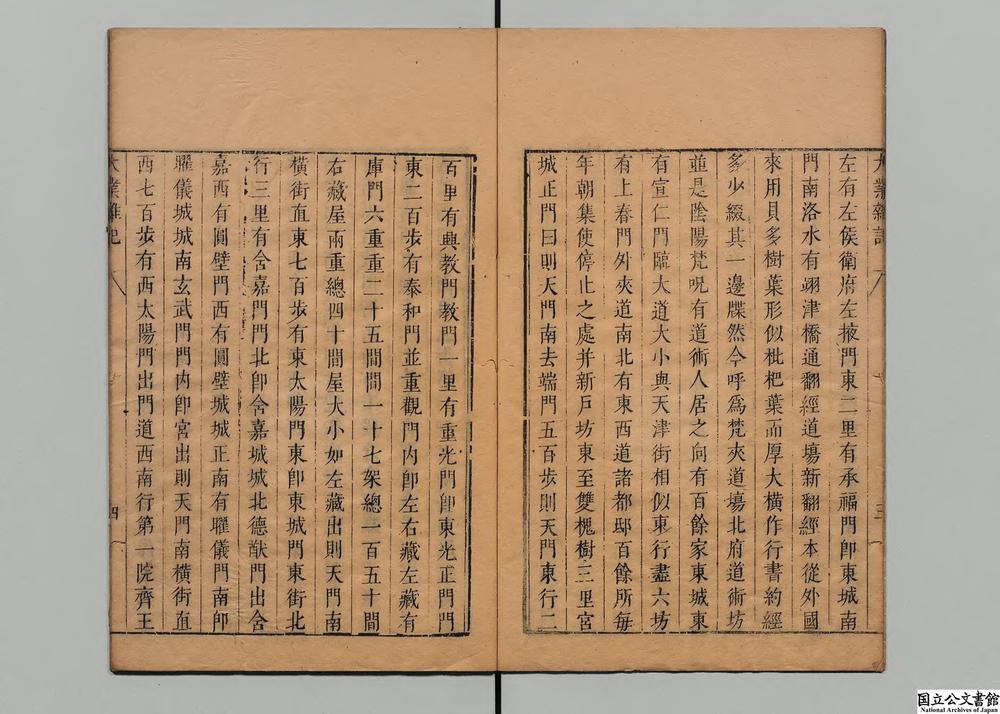 大業雜記
三
左有左侯衛府左掖門東二里有承福門卽東城南
門南洛水有翊津橋通翻經道塲新翻經本從外國
來用貝多樹葉形似枇杷葉而厚大橫作行書約經
多少綴其一邊牒然今呼爲梵夾道塲北府道術坊
並是陰陽梵呪有道術人居之向有百餘家東城東
有宣仁門臨大道大小與天津街相似東行盡六坊
有上春門外夾道南北有東西道諸都邸百餘所每
年朝集使停止之處并新戶坊東至雙槐樹三里宮
城正門曰則天門南去端門五百步則天門東行二
百里有興教門教門一里有重光門卽東光正門門
東二百步有泰和門並重觀門內卽左右藏左藏有
庫門六重重二十五間間一十七架總一百五十間
右藏屋兩重總四十間屋大小如左藏出則天門南
橫街直東七百步有東太陽門東卽東城門東街北
行三里有含嘉門門北卽含嘉城城北德猷門出含
嘉西有圓壁門西有圓壁城城正南有曜儀門南卽
曜儀城城南玄武門門內卽宮出則天門南橫街直
西七百步有西太陽門出門道西南行第一院齊王
大業雜記
四
国立公文書館
National Archives of Japan